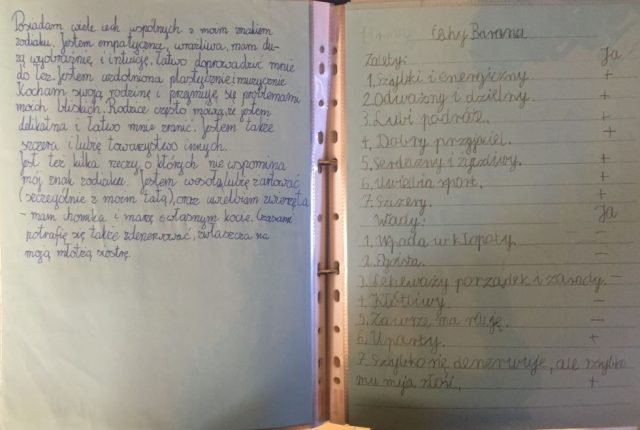 Posiadam wiele cech wspólnych z moim znakiem
zodiaku. Jestem empatyczna, wrażliwa, mam du-
żą wyobraźnię, i intuicję, łatwo doprowadzić mnie
do łez. Jestem uzdolniona plastycznie i muzycznie
Kocham swoją rodzinę i przejmuję się problemami
moich bliskich. Rodzice często mówią, że jestem
delikatna i łatwo mnie zranić. Jestem także
szczera i lubię towarzystwo innych.
Jest też kilka rzeczy o których nie wspomina
mój znak zodiaku. Jestem wesoła, lubię żartować
(szczególnie z moim tatą), oraz uwielbiam zwierzęta
- mam chomika i marzę o własnym kocie. Czasami
potrafię się także zdenerwować, zwłaszcza na
moją młodszą siostrę.
Cechy Barana
Zalety: Ja
1. Szybki i energiczny. +
2. Odważny i dzielny. +
3. Lubi podróże. +
4. Dobry przyjaciel. +
5. Serdeczny i życzliwy. +
6. Uwielbia sport. +
7. Szczery. +
Wady: Ja
1. Wpada w kłopoty. -
2. Egoista. -
3. Lekceważy porządek i zasady. -
4. Kłótliwy. -
5. Zawsze ma rację. -
6. Uparty. +
7. Szybko się denerwuje, ale szybko
mu mija złość. +